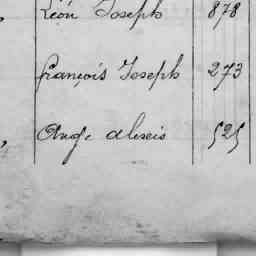 Léon Joseph 878
françois Joseph 273
Ange alexis 525